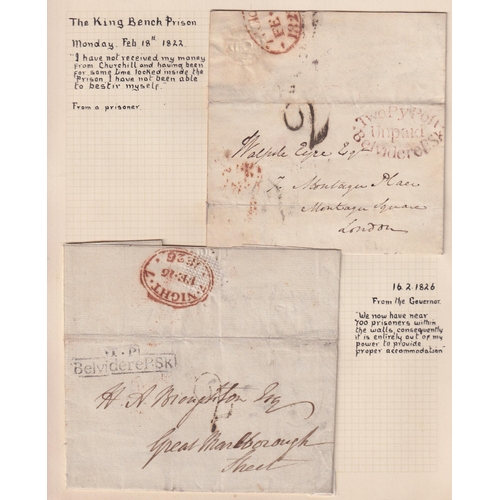 The King Bench Prison
Monday, Feb 18th 1822.
"I have not received my money
from Churchill and having been
for some time locked inside the
Prison I have not been able
to bestir myself."
From a prisoner.
2
TwoPyPost
Unpaid
BelviderePSk
Walpole Eyre Esqr
Montagu Place
Montagu Square
London
7. NIGHT. 7
FE. 16
1826
T.P.
BelviderePSk
H. A. Broughton Esq
Great Marlborough
Street
16.2.1826
From the Governor.
"We now have near
700 prisoners within
the walls, consequently
it is entirely out of my
power to provide
proper accommodation"